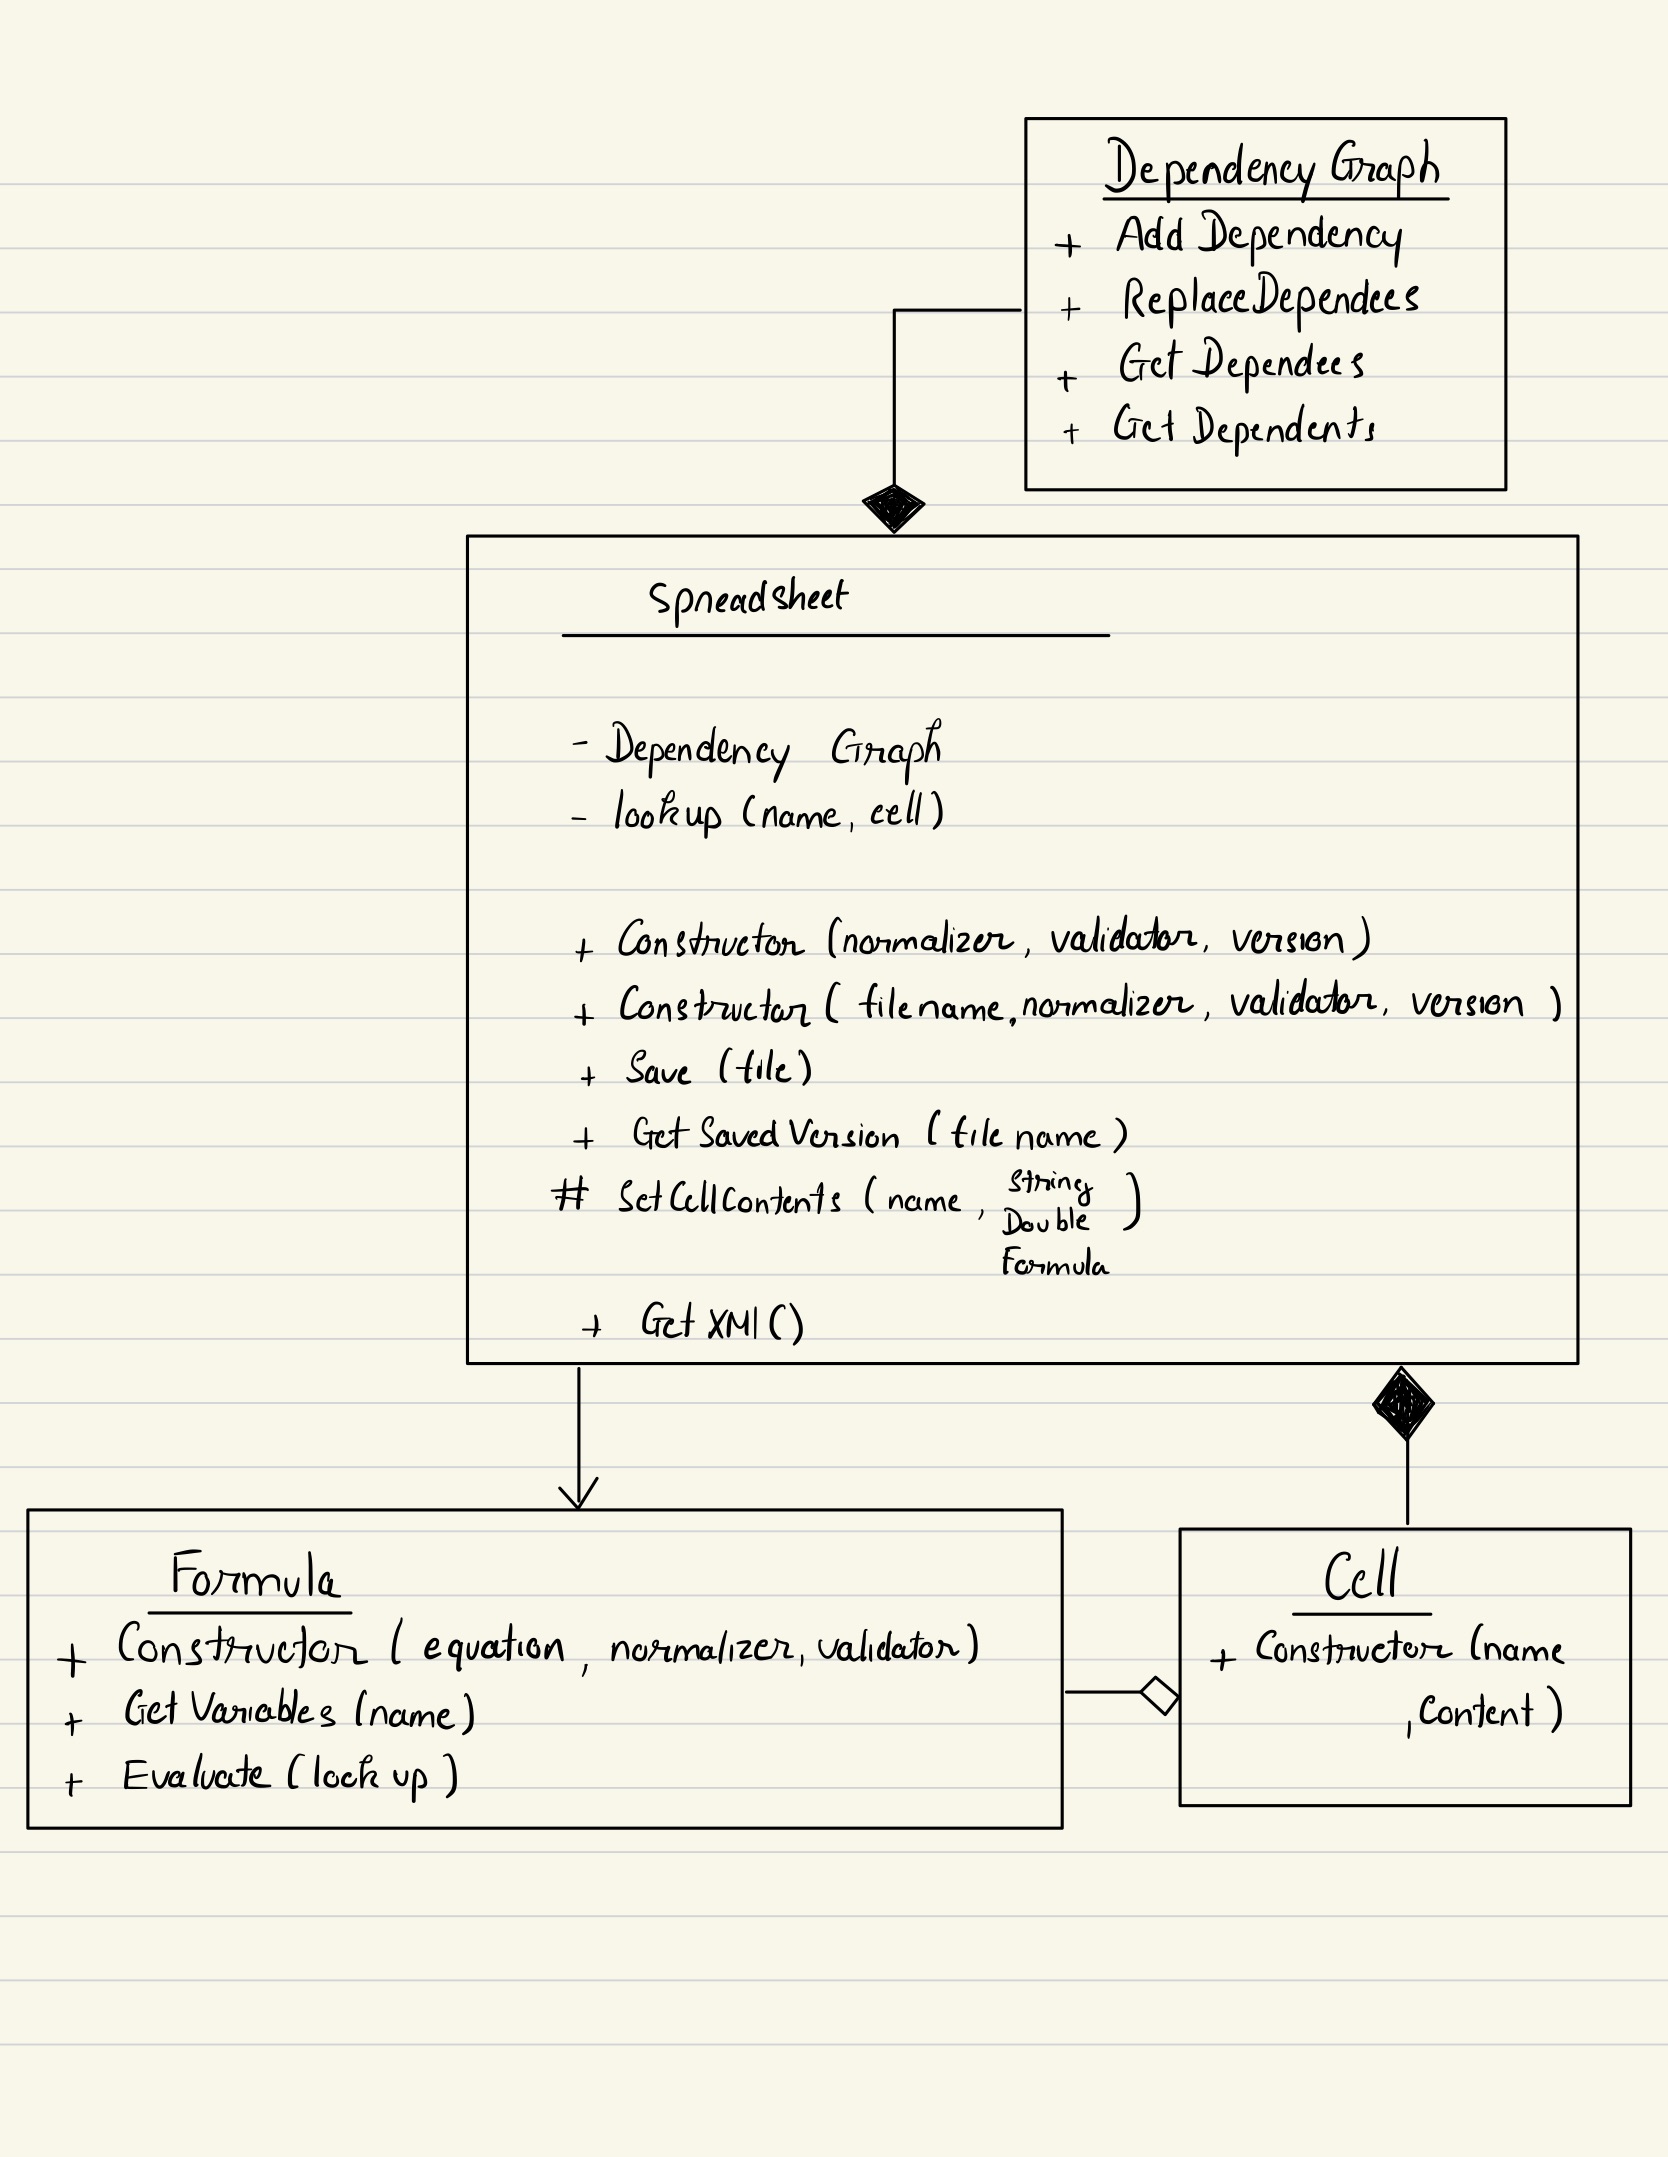 Dependency Graph
+ Add Dependency
+ ReplaceDependees
+ Get Dependees
+ Get Dependents
Spreadsheet
- Dependency Graph
- lookup (name, cell)
+ Constructor (normalizer, validator, version)
+ Constructor ( filename, normalizer, validator, version )
+ Save (file)
+ Get Saved Version ( file name )
# SetCellContents ( name, String
Double )
Formula
+ Get XMl ()
Formula
+ Constructor ( equation, normalizer, validator)
+ Get Variables (name)
+ Evaluate ( look up )
Cell
+ Constructor (name
, Content )